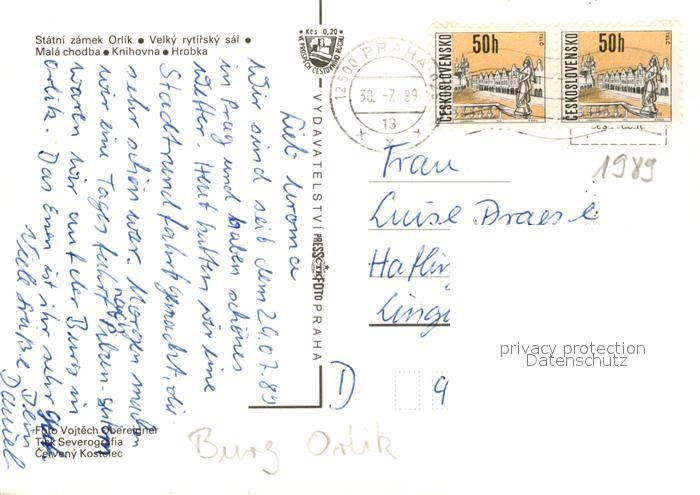 Státní zámek Orlík ● Velký rytířský sál ●
Malá chodba ● Knihovna ● Hrobka
Kčs 0,20
VE PROSPĚCH CESTOVNÍHO RUCHU
12500 PRAHA
30. -7. 89
13
ČESKOSLOVENSKO 50h
ČESKOSLOVENSKO 50h
1989
VYDAVATELSTVÍ PRESSFOTO PRAHA
Lieb Uroma
Wir sind seit dem 24.07.89
in Prag und haben schönes
Wetter. Heut hatten wir eine
Stadtrundfahrt gemacht, die
sehr schön war. Morgen machen
wir eine Tagesfahrt nach
waren wir auf der Burg in
Orlik. Das Essen ist ihr sehr gut.
Viele Grüße Dein
Daniel
Frau
Luise
Haflin
Ling
D
Foto Vojtěch Obereigner
Tisk Severografia
Červený Kostelec
Burg Orlik
privacy protection
Datenschutz